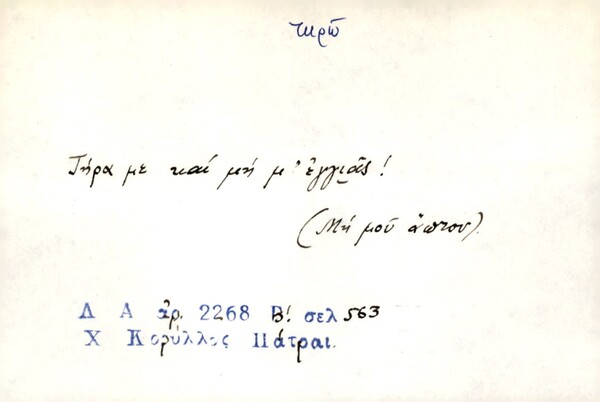 τηρῶ
Τήρα με καί μή μ' ἐγγιᾶς!
(Μή μοῦ ἅπτου).
Λ Α ἀρ. 2268 Β! σελ 563
Χ Κορύλλος Πάτραι.